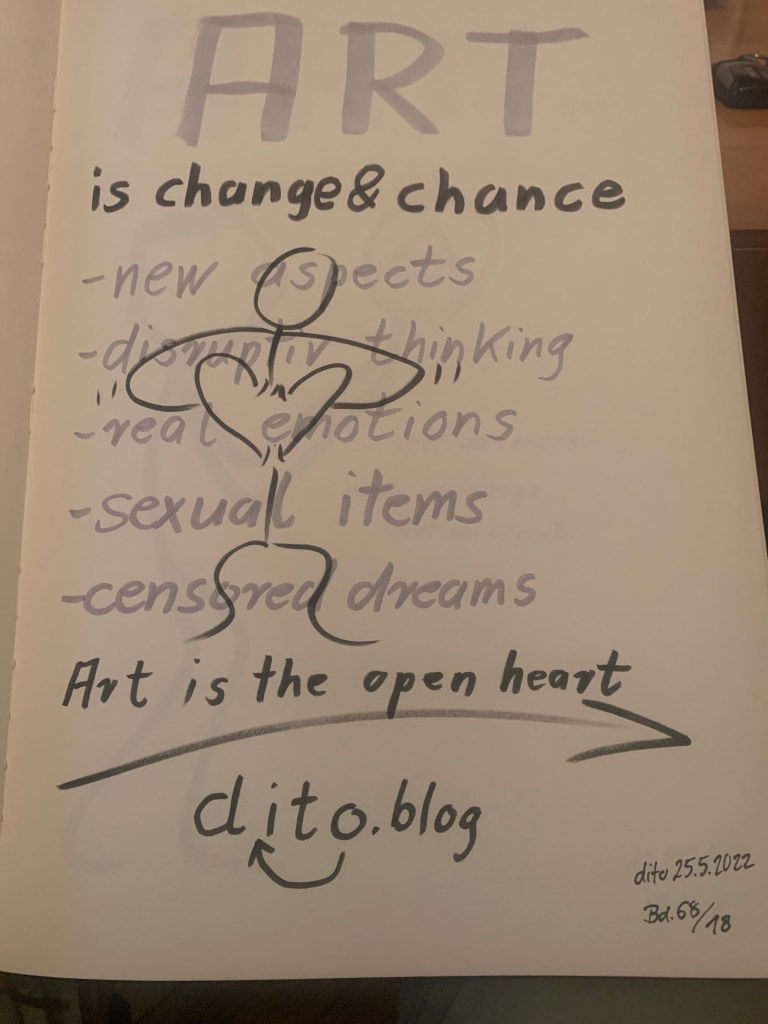 ART
is change & chance
-new aspects
-disruptiv thinking
-real emotions
-sexual items
-censored dreams
Art is the open heart
dito.blog
dito 25.5.2022
Bd.68/18